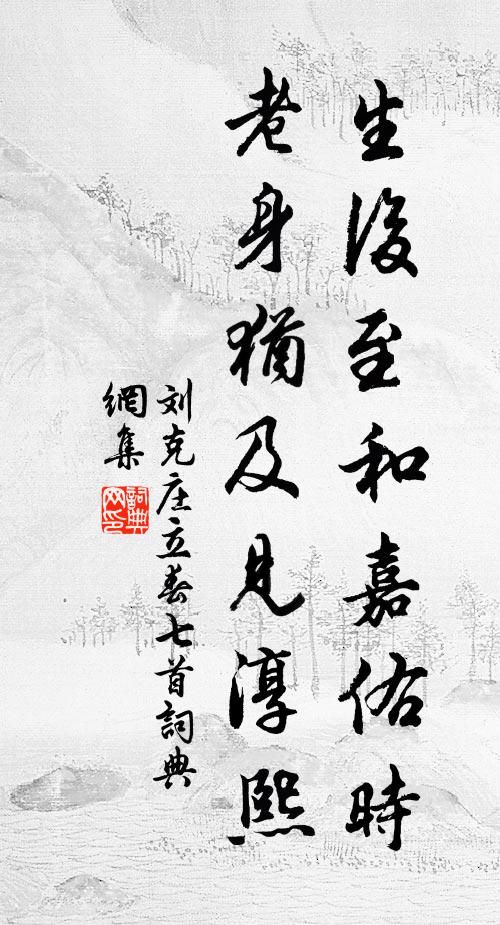 生後至和嘉佑時
老身猶及見淳熙
刘克庄立春七首詞典
網集
詞典
网印